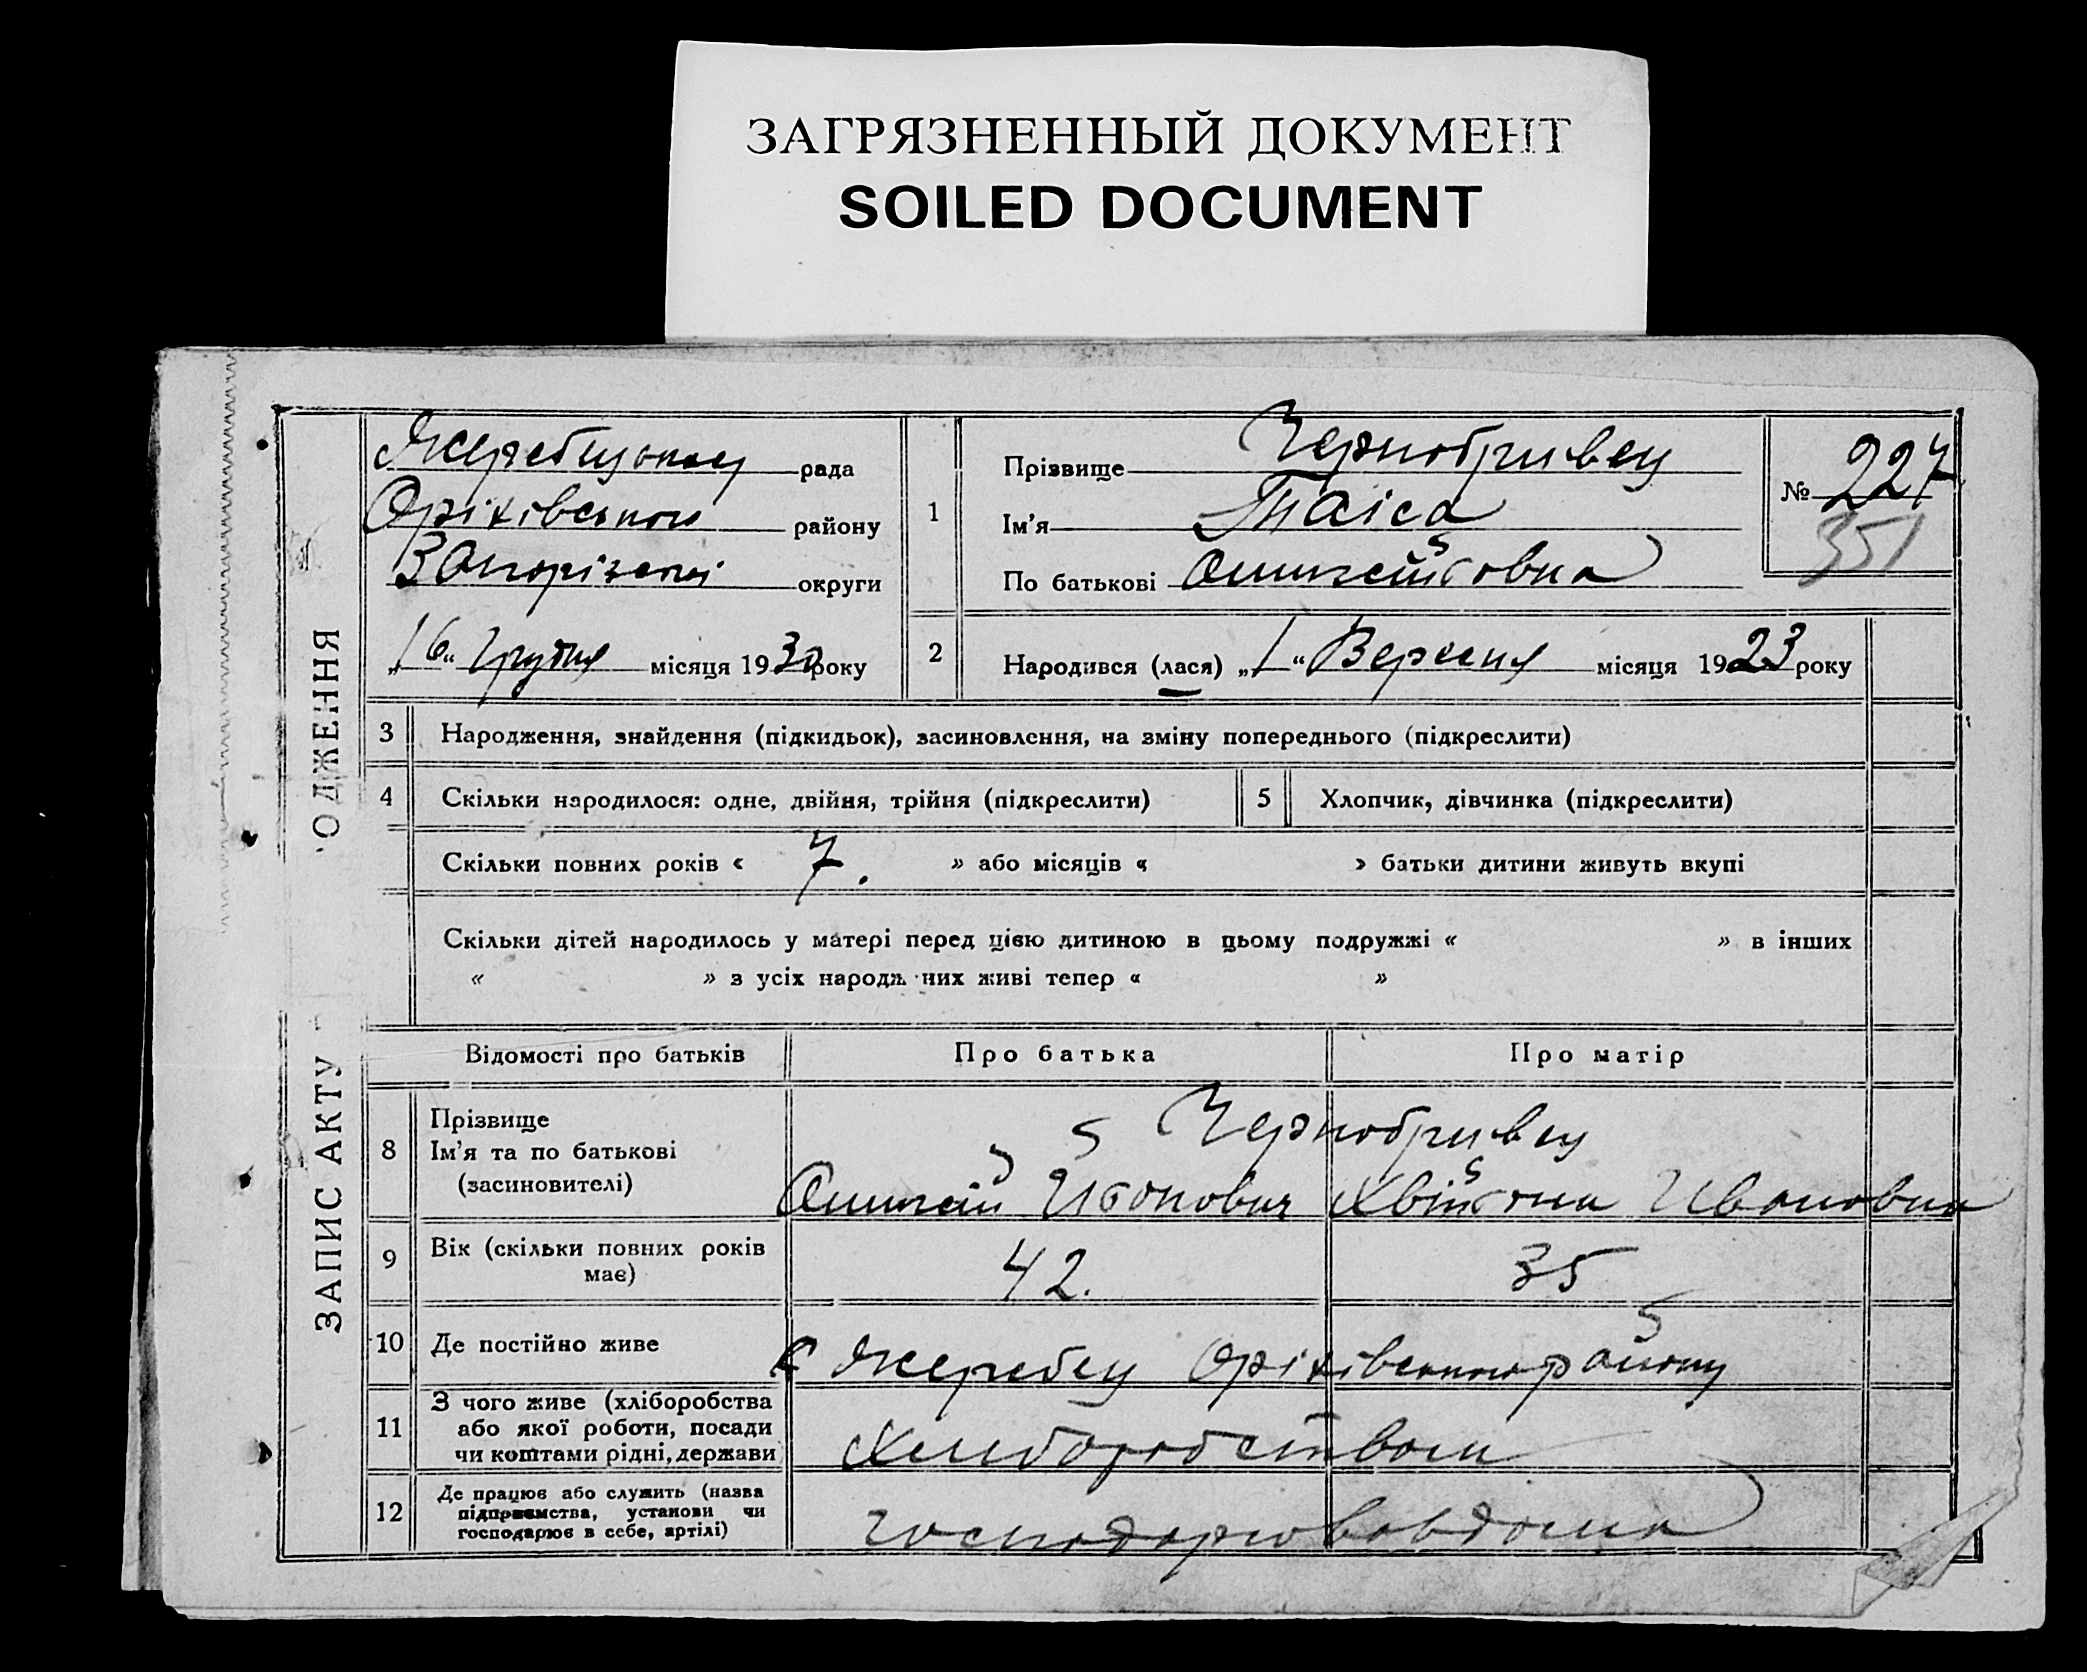 ЗАГРЯЗНЕННЫЙ ДОКУМЕНТ
SOILED DOCUMENT
ЗАПИС АКТУ ОДЖЕННЯ
рада
Оріхівського району
Запорізької округи
„16“ Грудня місяця 1930 року
1
Прізвище Чернобривец
Ім’я Таіса
По батькові
№ 227
351
2
Народився (лася) „1“ Вересня місяця 1923 року
3 Народження, знайдення (підкидьок), засиновлення, на зміну попереднього (підкреслити)
4 Скільки народилося: одне, двійня, трійня (підкреслити)
5 Хлопчик, дівчинка (підкреслити)
Скільки повних років « 7. » або місяців « » батьки дитини живуть вкупі
Скільки дітей народилось у матері перед цією дитиною в цьому подружжі « » в інших
« » з усіх народж них живі тепер « »
Відомості про батьків
Про батька
Про матір
8
Прізвище
Ім’я та по батькові
(засиновителі)
Чернобривец
Ивановна
9
Вік (скільки повних років
має)
42.
35
10 Де постійно живе
с Жеребец Оріхівського району
11
З чого живе (хліборобства
або якої роботи, посади
чи коштами рідні, держави
Хлиборобством
12
Де працює або служить (назва
підприємства, установи чи
господарює в себе, артілі)